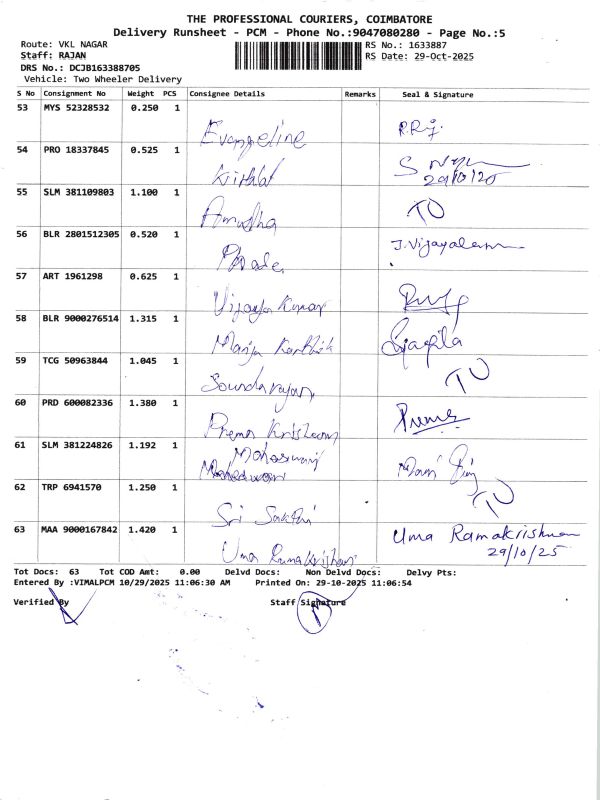 THE PROFESSIONAL COURIERS, COIMBATORE
Delivery Runsheet - PCM - Phone No.:9047080280 - Page No.:5
Route: VKL NAGAR RS No.: 1633887
Staff: RAJAN RS Date: 29-Oct-2025
DRS No.: DCJB163388705
Vehicle: Two Wheeler Delivery
S No Consignment No Weight PCS Consignee Details Remarks Seal & Signature
53 MYS 52328532 0.250 1
Evangeline
54 PRO 18337845 0.525 1
29/10/25
55 SLM 381109803 1.100 1
Anusha
56 BLR 2801512305 0.520 1 J.Vijayalaxm
57 ART 1961298 0.625 1
Vijaya Kumar
58 BLR 9000276514 1.315 1
Manju Karthik
59 TCG 50963844 1.045 1
Soundarajan
60 PRD 600082336 1.380 1
Prema
61 SLM 381224826 1.192 1
62 TRP 6941570 1.250 1
Sri Sakthi
63 MAA 9000167842 1.420 1 Uma Ramakrishnan
29/10/25
Uma Ramakrishnan
Tot Docs: 63 Tot COD Amt: 0.00 Delvd Docs: Non Delvd Docs: Delvy Pts:
Entered By :VIMALPCM 10/29/2025 11:06:30 AM Printed On: 29-10-2025 11:06:54
Verified By Staff Signature